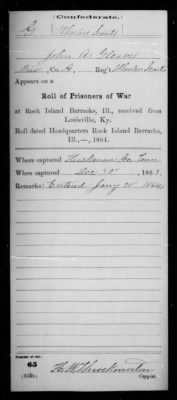 Confederate.
G Wheeler Scouts
John A. Gleaves
Co. A, Reg't Wheeler Scouts
Appears on a
Roll of Prisoners of War
at Rock Island Barracks, Ill., received from
Louisville, Ky.
Roll dated Headquarters Rock Island Barracks,
Ill., —, 1864.
Where captured Hickman Co Tenn
When captured Dec 30, 1863.
Remarks: Entered Jany 1864
Number of roll:
65
(639b)
Copyist.